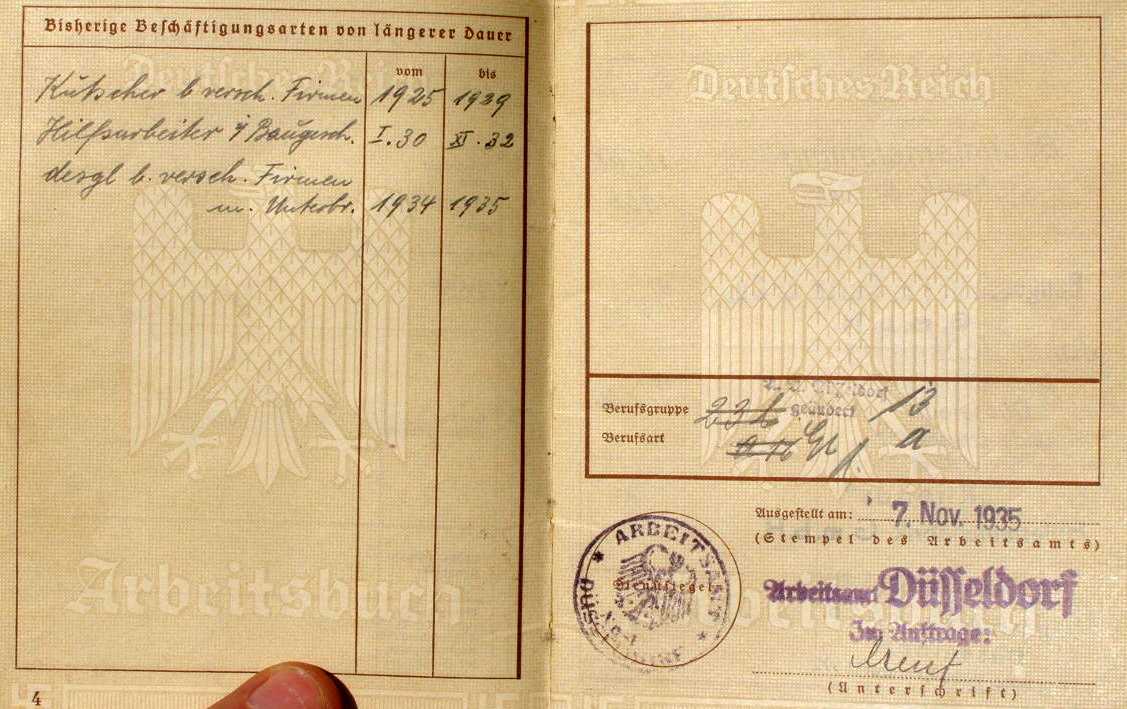 Bisherige Beschäftigungsarten von längerer Dauer
vom bis
Kutscher b versch. Firmen 1925 1939
Hilfsarbeiter i/ Baugesch. I. 30 XI. 32
desgl b. versch. Firmen
m. Unterbr. 1934 1935
Deutsches Reich
Arbeitsbuch
4
Deutsches Reich
geändert
Berufsgruppe 23b 13
Berufsart a
Ausgestellt am: 7. Nov. 1935
(Stempel des Arbeitsamts)
ARBEITSAMT
DÜSSELDORF
Dienstsiegel
Arbeitsamt Düsseldorf
Im Auftrage:
(Unterschrift)